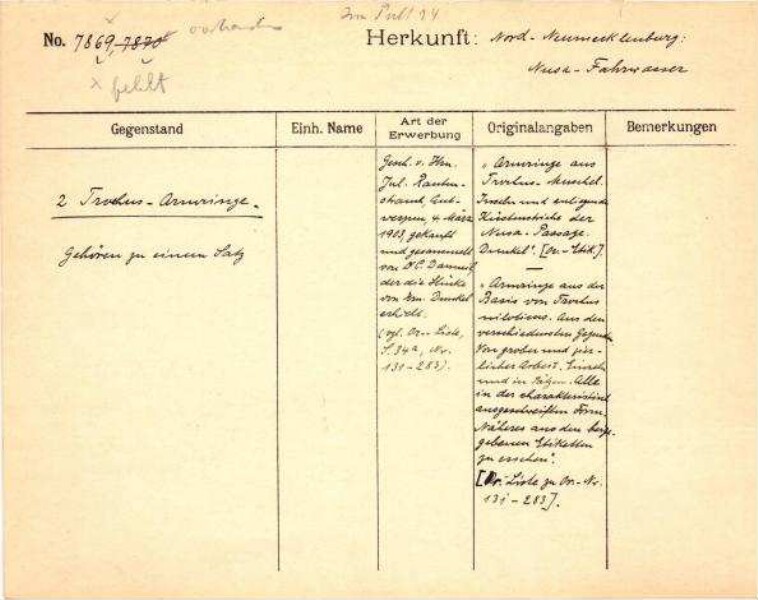 Im Pult 94
vorhanden
No. 7869, 7870
x fehlt
Herkunft: Nord-Neumecklenburg:
Nusa-Fahrwasser
Gegenstand
Einh. Name
Art der Erwerbung
Originalangaben
Bemerkungen
2 Trochus-Armringe.
Gehören zu einem Satz
Gesch. v. Hrn.
Jul. Rauten-
strauch, Ant-
werpen, 4. März
1903, gekauft
und gesammelt
von Dr C. Danneil,
der die Stücke
von Hrn. Dunckel
erhielt.
(vgl. Or.-Liste,
S. 34a, Nr.
131-283).
"Armringe aus
Trochus-Muschel.
Inseln und anliegende
Küstenstriche der
Nusa-Passage.
Dunkel". [Or.-Etik.].
"Armringe aus der
Basis von Trochus
niloticus. Aus den
verschiedensten Gegenden
Von grober und zier-
licher Arbeit. Einzeln
und in Sätzen. Alle
in der charakteristisch
ausgeschweiften Form.
Näheres aus den beige-
gebenen Etiketten
zu ersehen".
[Or.-Liste zu Or.-Nr.
131-283].